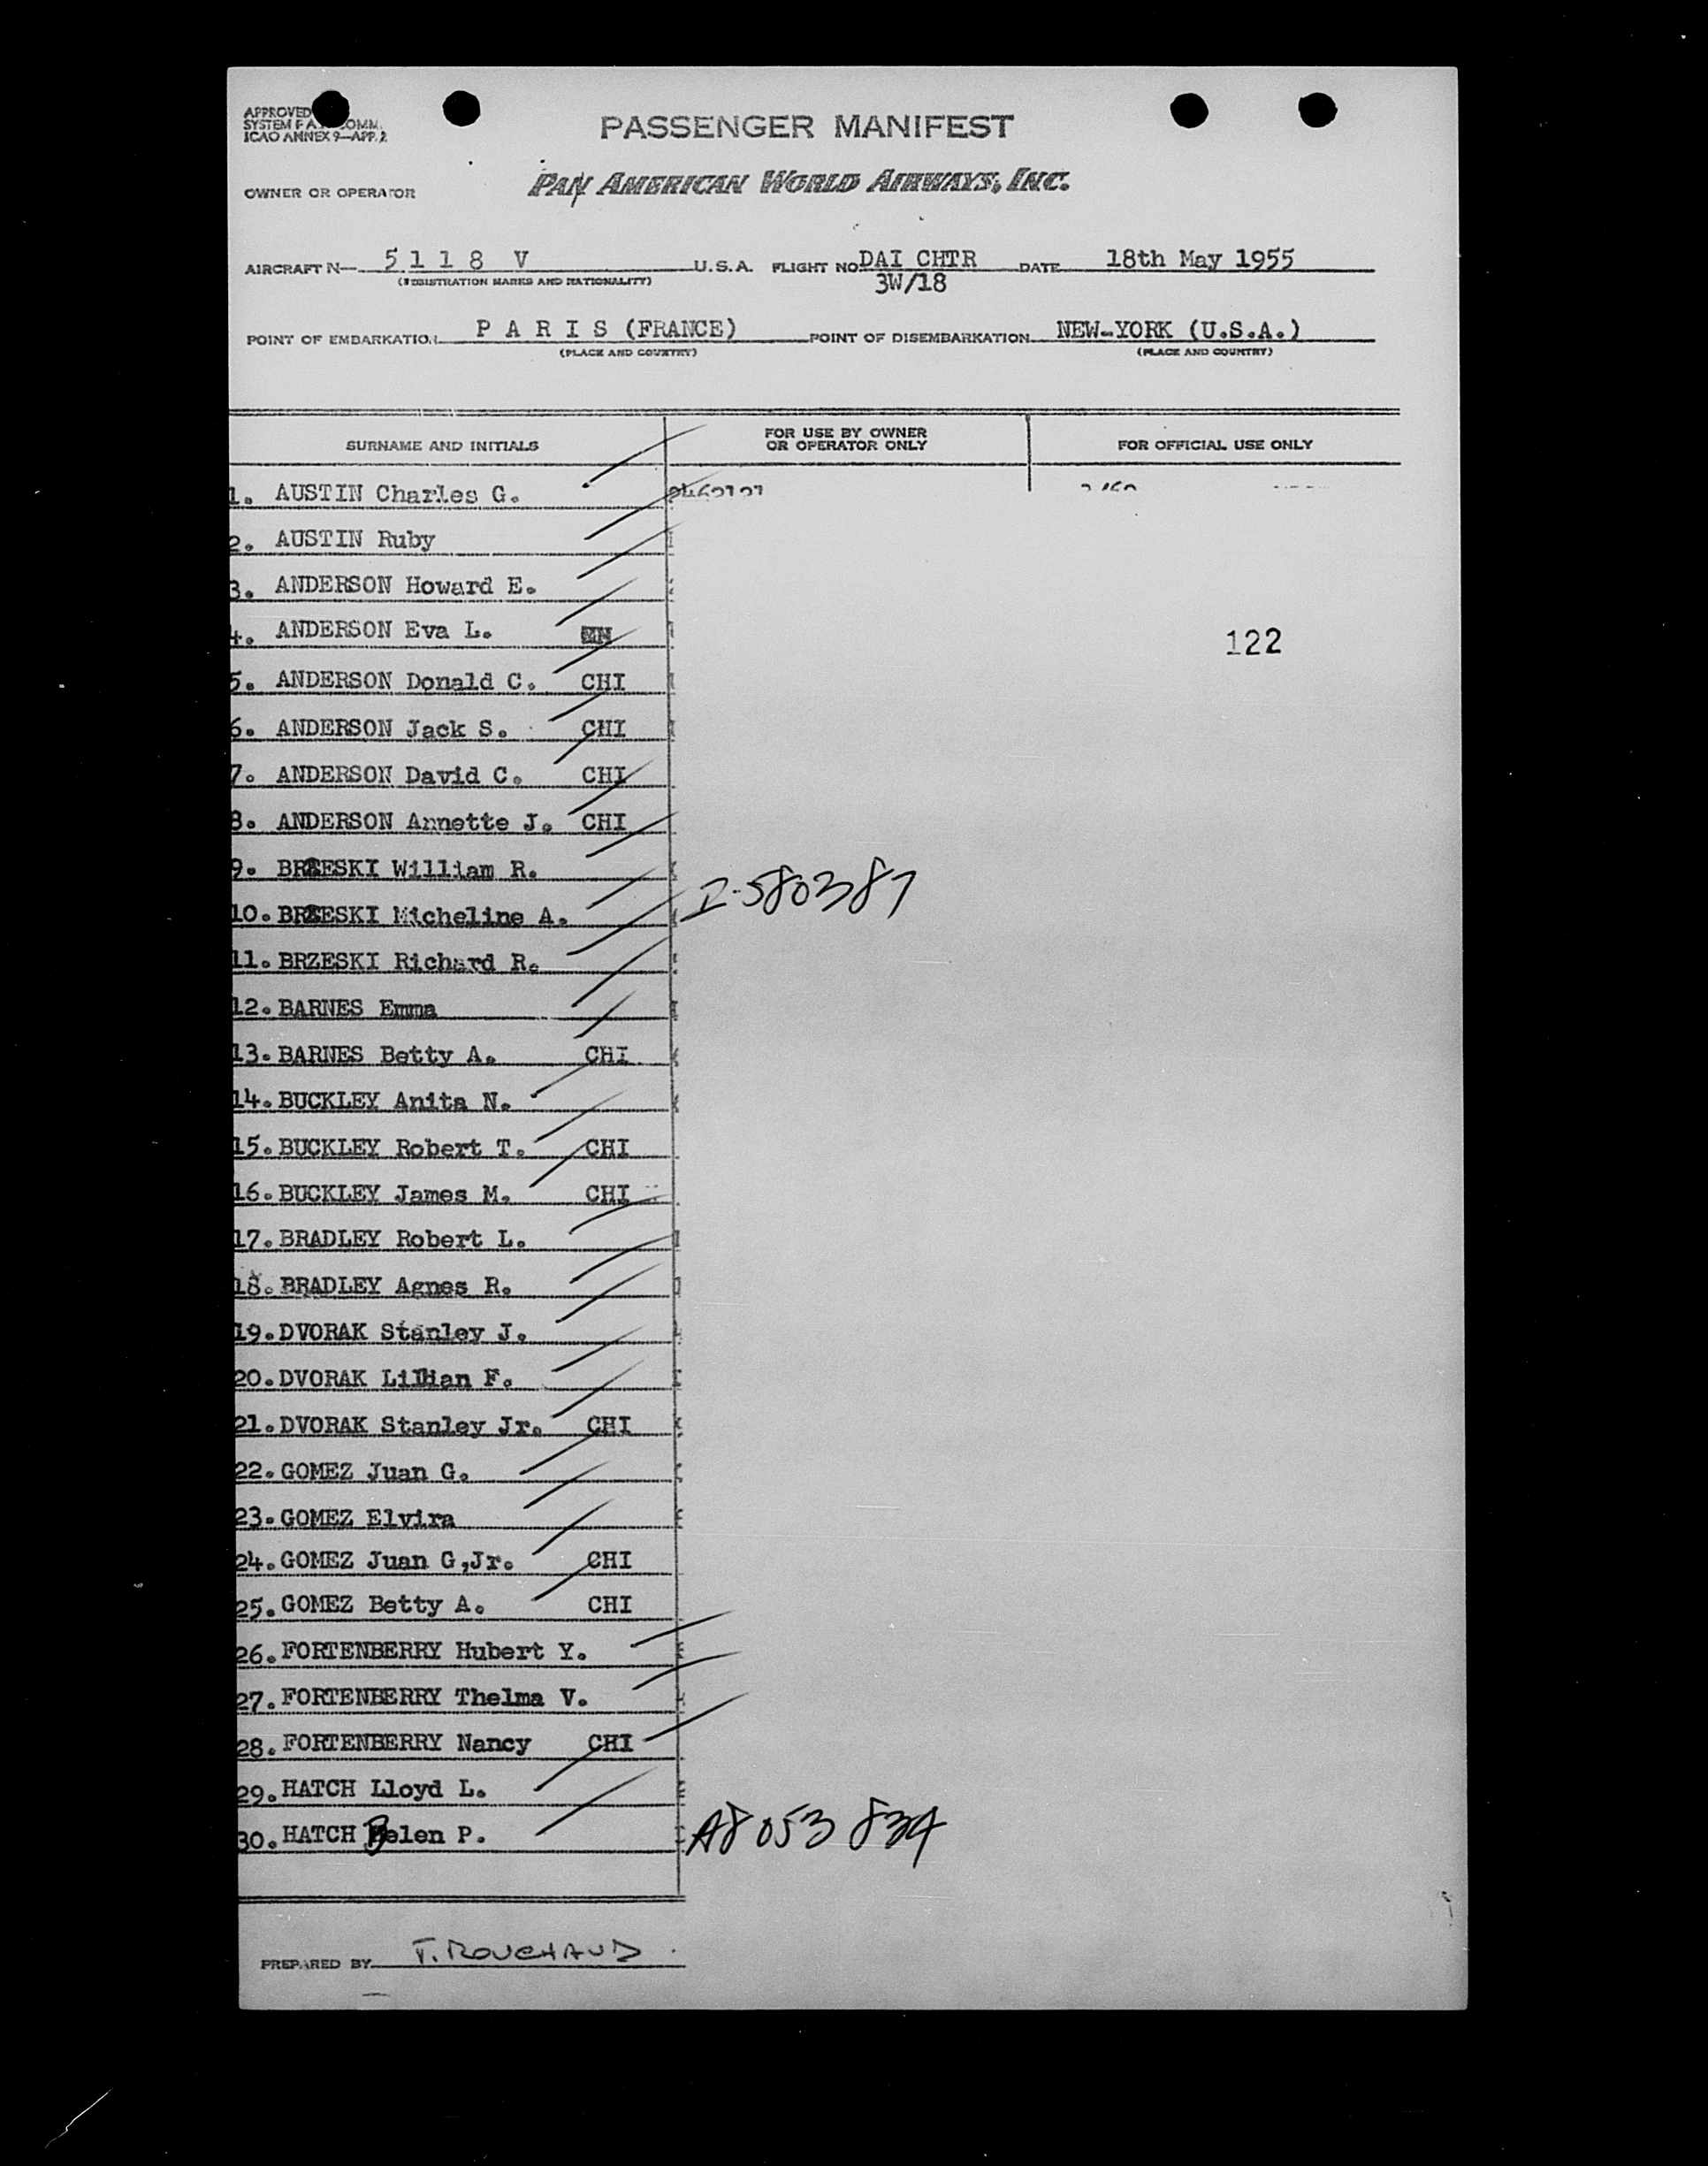 APPROVED
SYSTEM F A. COMM.
ICAO ANNEX 9—APP. 2
PASSENGER MANIFEST
OWNER OR OPERATOR PAN AMERICAN WORLD AIRWAYS, INC.
AIRCRAFT N— 5 1 1 8 V U.S.A. FLIGHT NO. DAI CHTR DATE 18th May 1955
(REGISTRATION MARKS AND NATIONALITY) 3W/18
POINT OF EMBARKATION P A R I S (FRANCE) POINT OF DISEMBARKATION NEW-YORK (U.S.A.)
(PLACE AND COUNTRY) (PLACE AND COUNTRY)
SURNAME AND INITIALS FOR USE BY OWNER OR OPERATOR ONLY FOR OFFICIAL USE ONLY
1. AUSTIN Charles G.
2. AUSTIN Ruby
3. ANDERSON Howard E.
4. ANDERSON Eva L. 122
5. ANDERSON Donald C. CHI
6. ANDERSON Jack S. CHI
7. ANDERSON David C. CHI
8. ANDERSON Annette J. CHI
9. BRZESKI William R.
10. BRZESKI Micheline A. I-580387
11. BRZESKI Richard R.
12. BARNES Emma
13. BARNES Betty A. CHI
14. BUCKLEY Anita N.
15. BUCKLEY Robert T. CHI
16. BUCKLEY James M. CHI
17. BRADLEY Robert L.
18. BRADLEY Agnes R.
19. DVORAK Stanley J.
20. DVORAK Lillian F.
21. DVORAK Stanley Jr. CHI
22. GOMEZ Juan G.
23. GOMEZ Elvira
24. GOMEZ Juan G,Jr. CHI
25. GOMEZ Betty A. CHI
26. FORTENBERRY Hubert Y.
27. FORTENBERRY Thelma V.
28. FORTENBERRY Nancy CHI
29. HATCH Lloyd L.
30. HATCH Belen P. A8 053 834
PREPARED BY T. ROUCHAUD